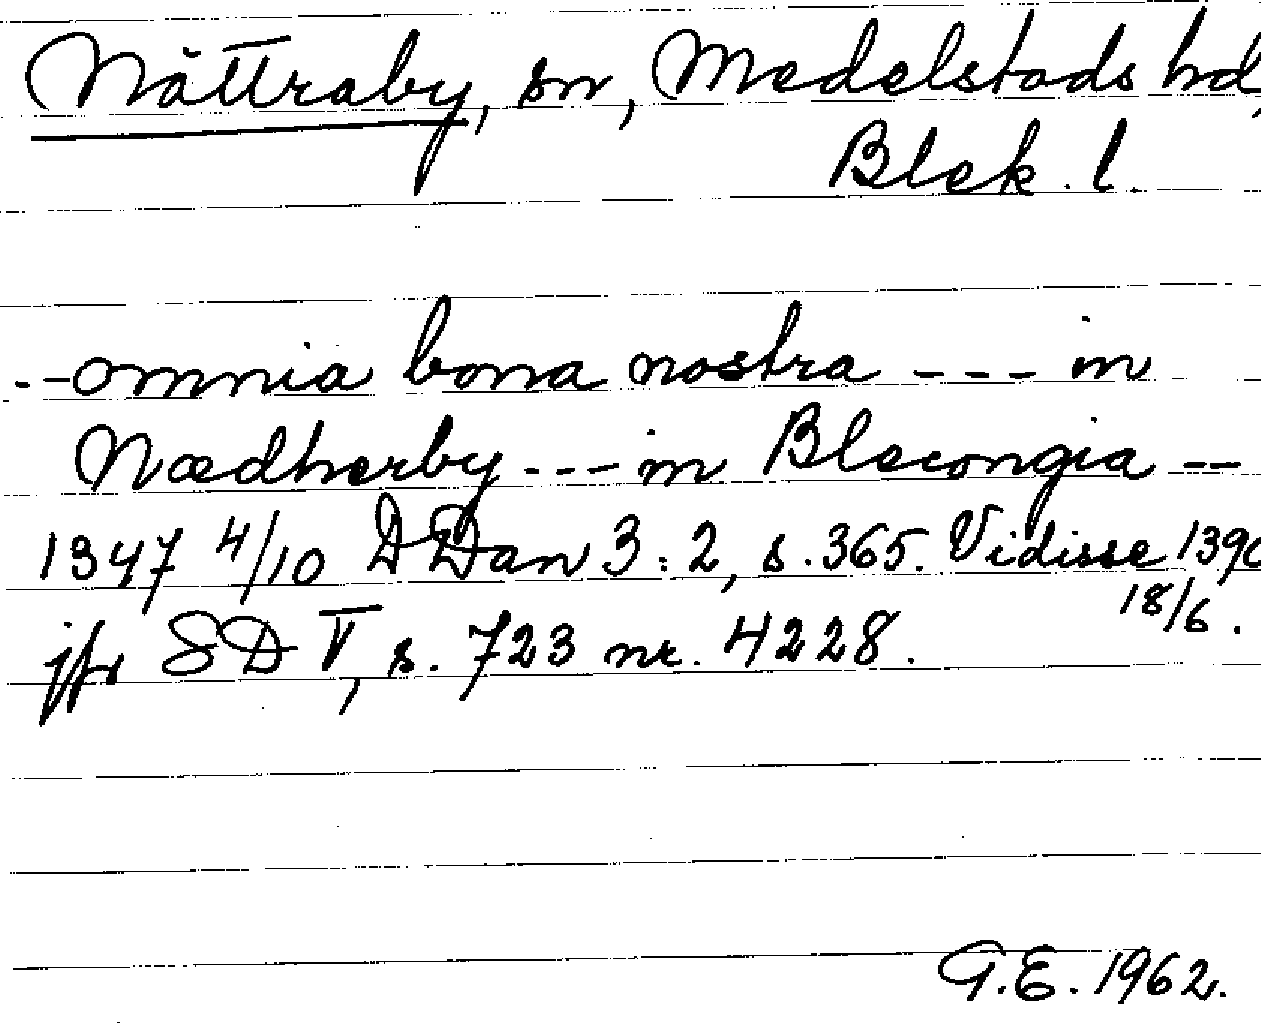 Nättraby, sn, Medelstads hd,
Blek. l.
--omnia bona nostra --- in
Nædherby --- in Blecongia --
1347 4/10 D Dan 3:2, s. 365. Vidisse 1390
18/6.
jfr SD V, s. 723 nr. 4228.
G.E. 1962.